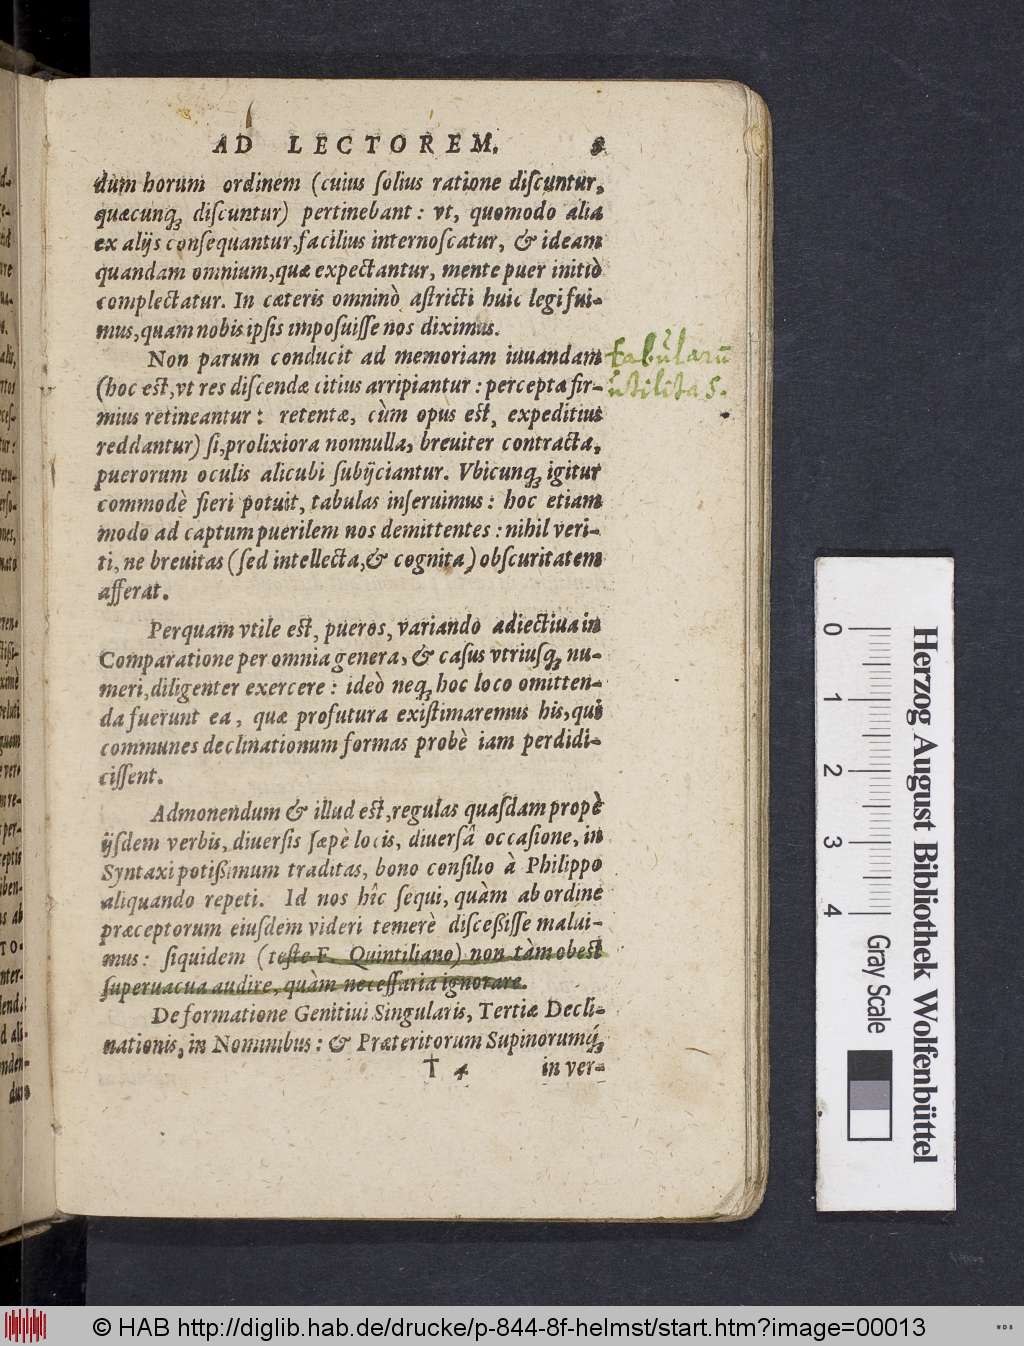 AD LECTOREM.
dum horum ordinem (cuius ſolius ratione diſcuntur,
quæcunqꝫ diſcuntur) pertinebant: vt, quomodo alia
ex alijs conſequantur, facilius internoſcatur, & ideam
quandam omnium, quæ expectantur, mente puer initiò
complectatur. In cæteris omninò aſtricti huic legi fui-
mus, quam nobis ipſis impoſuiſſe nos diximus.
Non parum conducit ad memoriam iuuandam
(hoc eſt, vt res diſcendæ citius arripiantur: percepta fir-
mius retineantur: retentæ, cùm opus eſt, expeditius
reddantur) ſi, prolixiora nonnulla, breuiter contracta,
puerorum oculis alicubi ſubijciantur. Vbicunqꝫ igitur
commodè fieri potuit, tabulas inſeruimus: hoc etiam
modo ad captum puerilem nos demittentes: nihil veri-
ti, ne breuitas (ſed intellecta, & cognita) obſcuritatem
afferat.
tabularū
utilitas.
Perquam vtile eſt, pueros, variando adiectiua in
Comparatione per omnia genera, & caſus vtriuſqꝫ nu-
meri, diligenter exercere: ideò neqꝫ hoc loco omitten-
da fuerunt ea, quæ profutura exiſtimaremus his, qui
communes declinationum formas probè iam perdidi-
ciſſent.
Admonendum & illud eſt, regulas quaſdam propè
ijſdem verbis, diuerſis ſæpè locis, diuerſâ occaſione, in
Syntaxi potißimum traditas, bono conſilio à Philippo
aliquando repeti. Id nos hîc ſequi, quàm ab ordine
præceptorum eiuſdem videri temerè diſceßiſſe malui-
mus: ſiquidem (teſte F. Quintiliano) non tàm obeſt
ſuperuacua audire, quàm neceſſaria ignorare.
De formatione Genitiui Singularis, Tertiæ Decli-
nationis, in Nominibus: & Præteritorum Supinorumq́ꝫ
† 4 in ver-
0 1 2 3 4
Gray Scale
Herzog August Bibliothek Wolfenbüttel
© HAB http://diglib.hab.de/drucke/p-844-8f-helmst/start.htm?image=00013